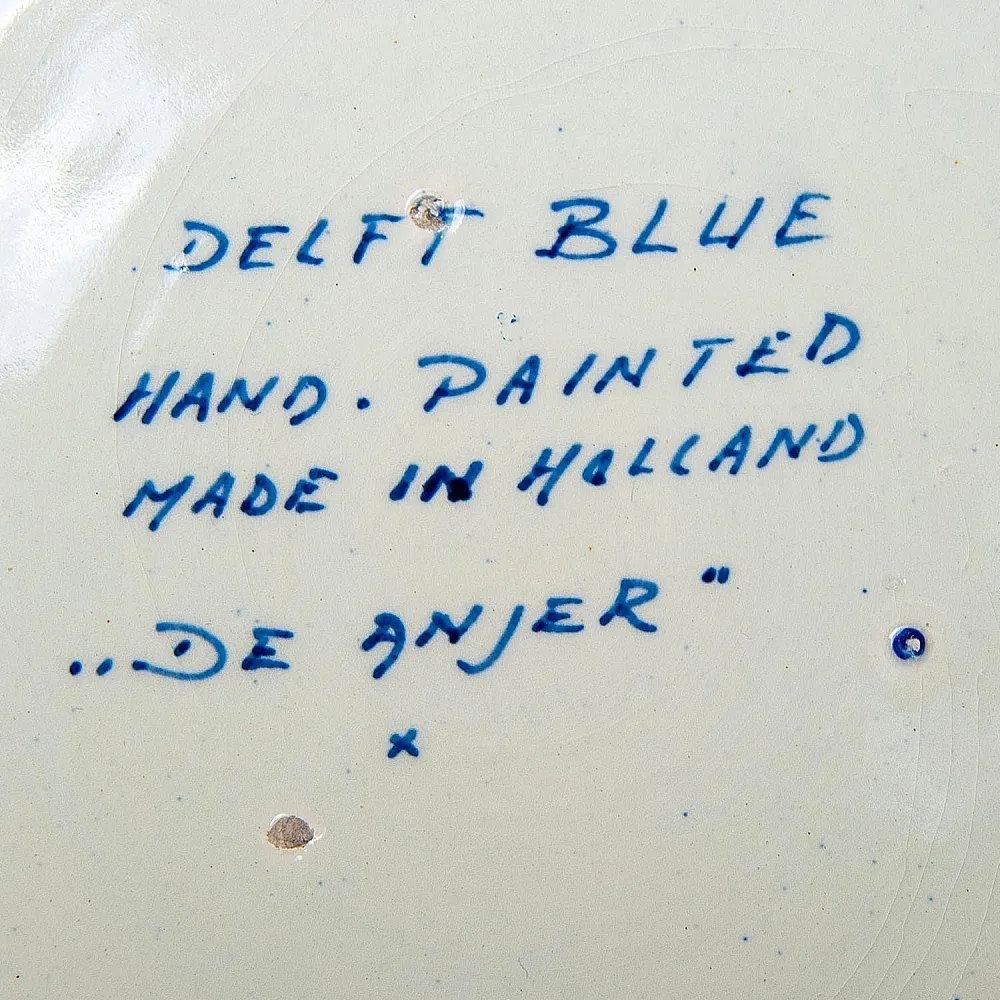 DELFT BLUE
HAND. PAINTED
MADE IN HOLLAND
„DE ANJER"
x